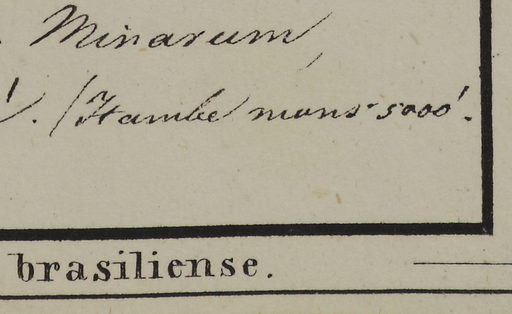 Minarum,
'. (Itambe mons 5000'.
brasiliense.